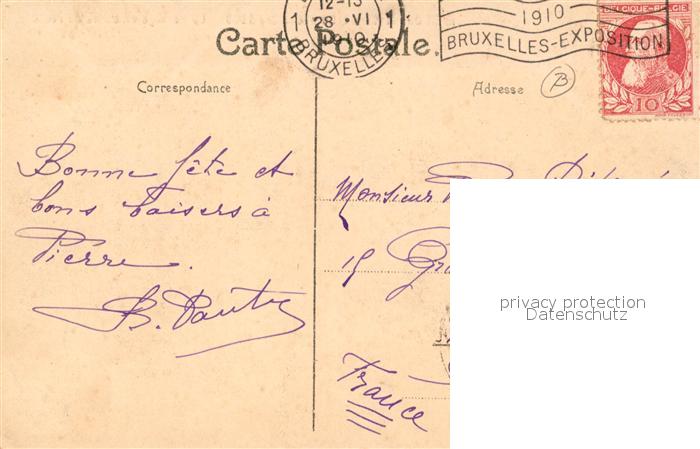 12-13
1 28 VI 1
1910
BRUXELLES
1910
BRUXELLES-EXPOSITION
BELGIQUE-BELGIE
10
Carte Postale.
Correspondance
Adresse
B
Bonne fête et
bons baisers à
Pierre.
Monsieur
15
France
privacy protection
Datenschutz